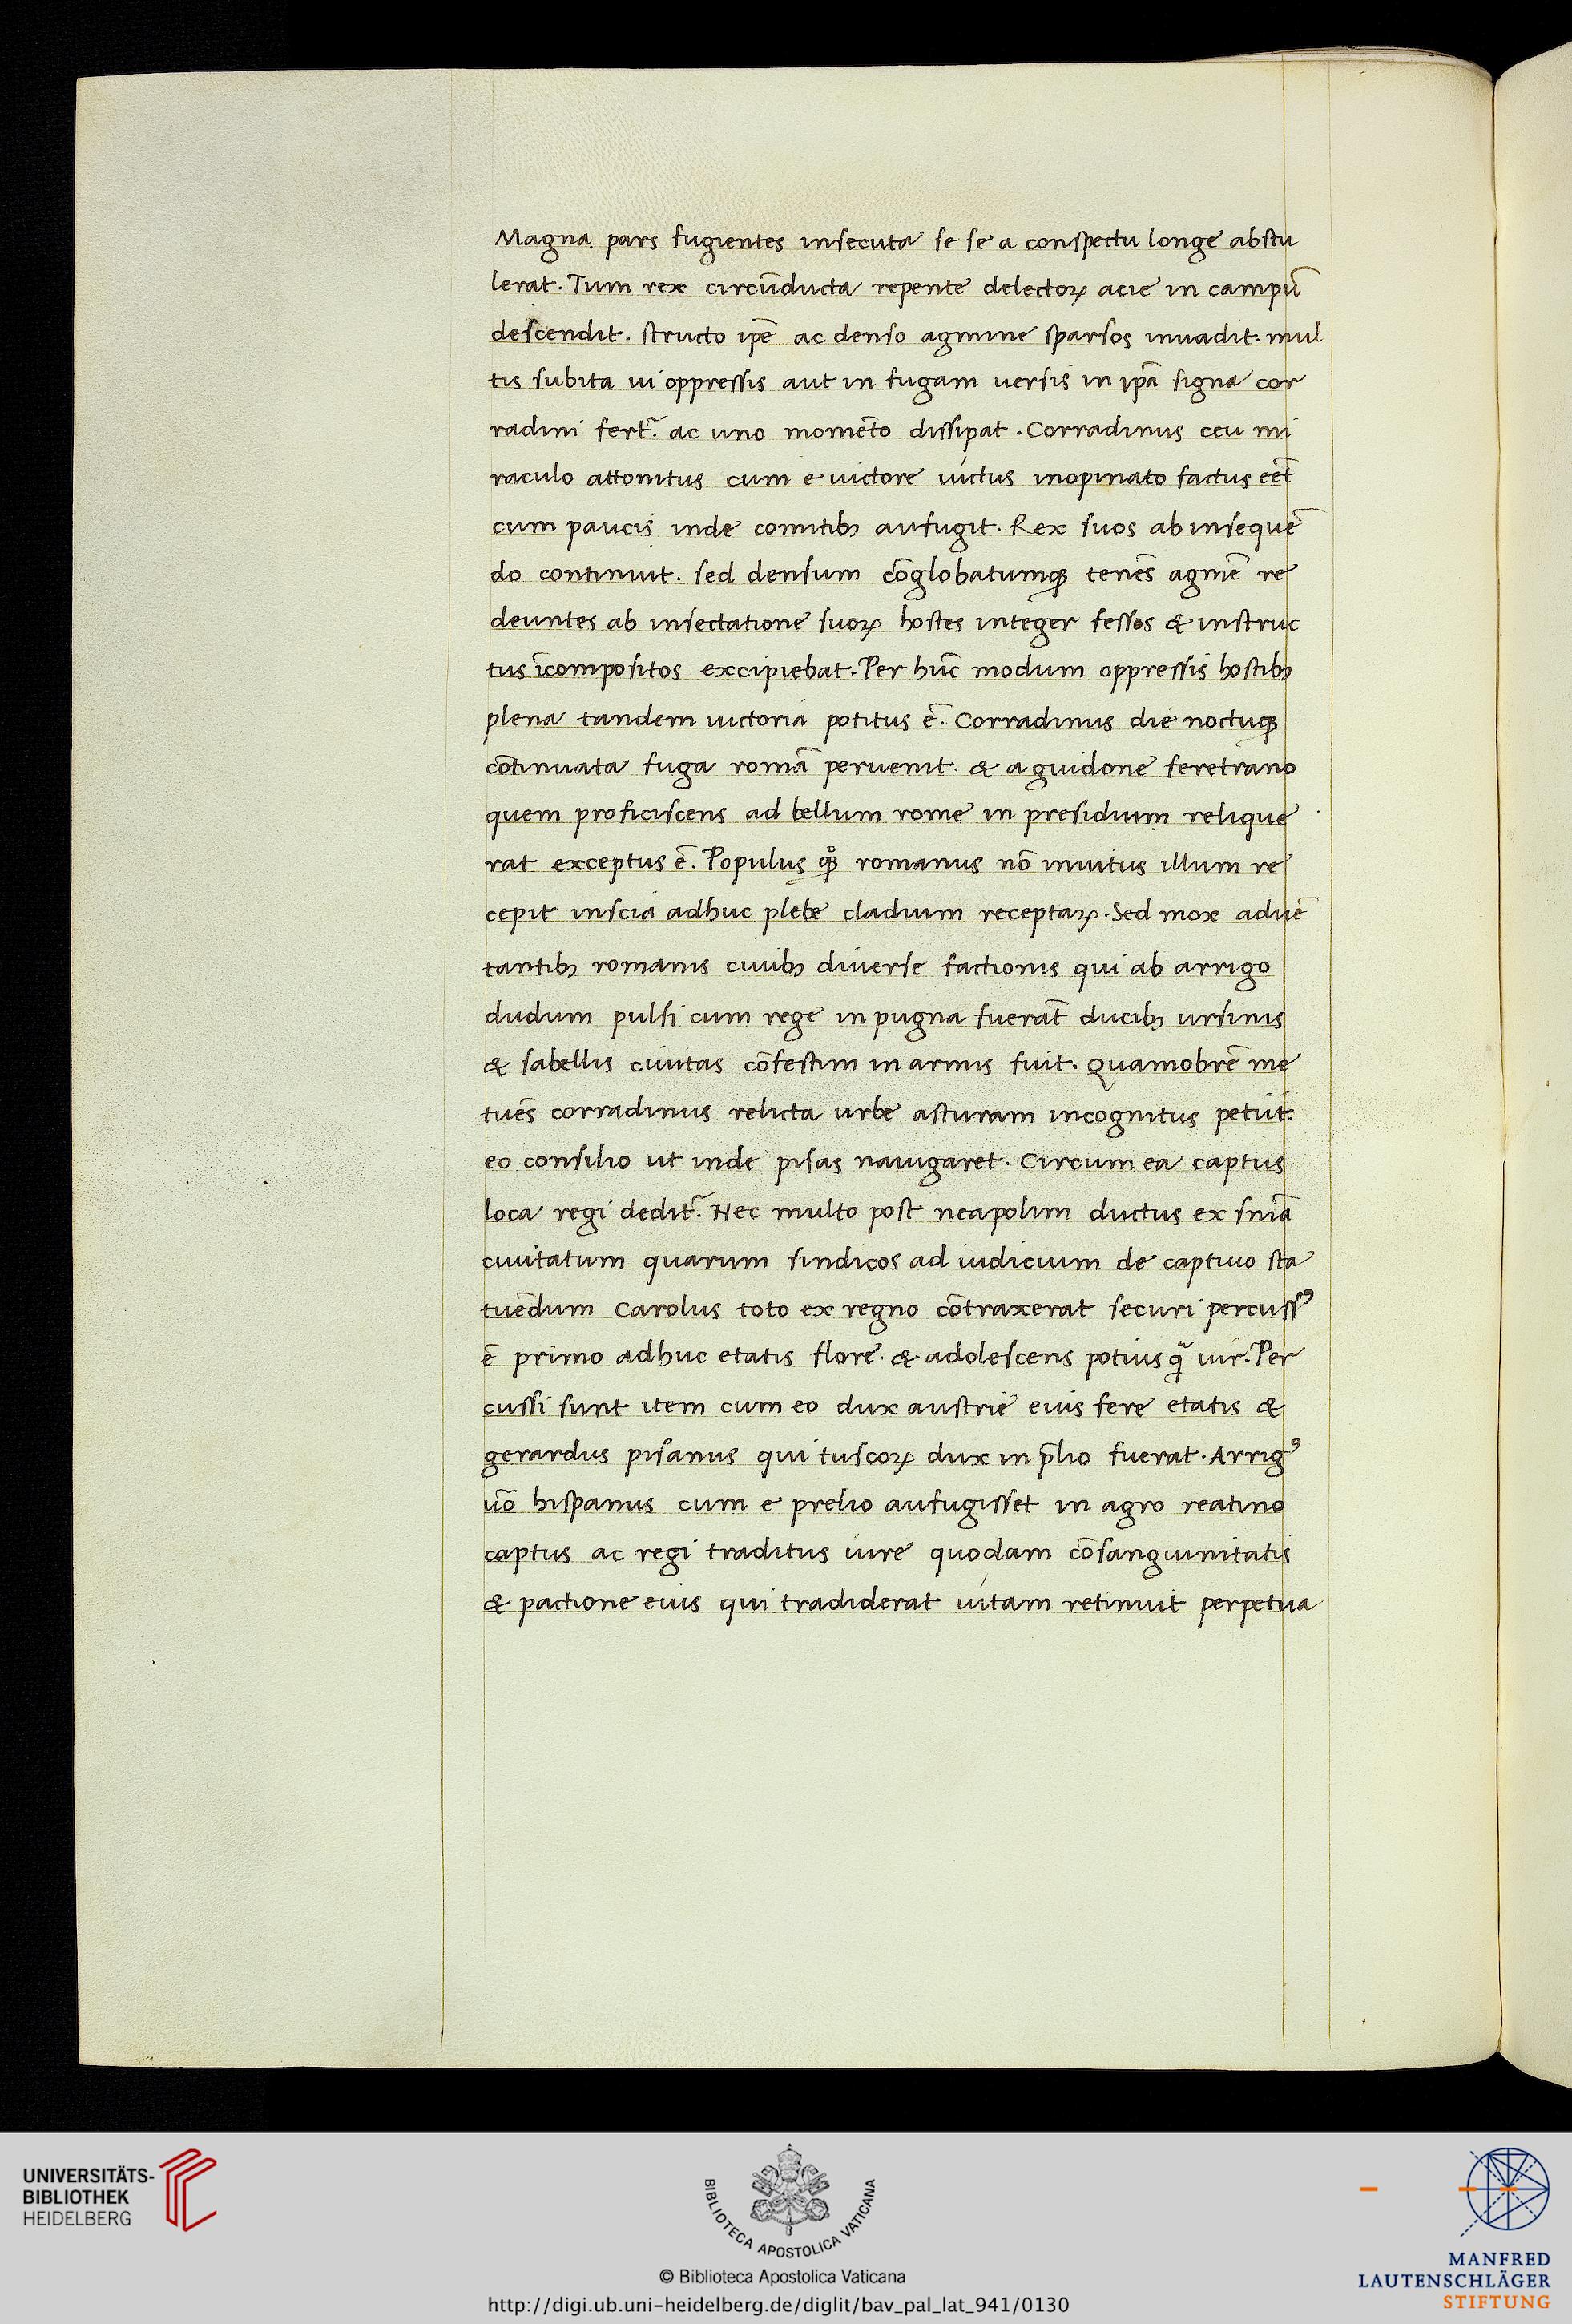 Magna pars fugientes insecuta se se a conspectu longe abstu
lerat. Tum rex circũducta repente delectoꝝ acie in campũ
descendit. structo ip̃e ac denso agmine sparsos inuadit. mul
tis subita ui oppressis aut in fugam uersis in ip̃a signa cor
radini fert᷑. ac uno momẽto dissipat. Corradinus ceu mi
raculo attonitus cum e uictore uictus inopinato factus eẽt
cum paucis inde comitibꝫ aufugit. Rex suos ab insequẽ
do continuit. sed densum cõglobatumqꝫ tenẽs agmẽ re
deuntes ab insectatione suoꝝ hostes integer fessos & instruc
tus ĩcompositos excipiebat. Per hũc modum oppressis hostibꝫ
plena tandem uictoria potitus ẽ. Corradinus die noctuqꝫ
cõtinuata fuga romã peruenit. & a guidone feretrano
quem proficiscens ad bellum rome in presidium relique
rat exceptus ẽ. Populus qͦꝫ romanus nõ inuitus illum re
cepit inscia adhuc plebe cladium receptaꝝ. Sed mox aduẽ
tantibꝫ romanis ciuibꝫ diuerse factionis qui ab arrigo
dudum pulsi cum rege in pugna fuerãt ducibꝫ ursinis
& sabellis ciuitas cõfestim in armis fuit. Quamobrẽ me
tuẽs corradinus relicta urbe asturam incognitus petiit.
eo consilio ut inde pisas nauigaret. Circum ea captus
loca regi dedit᷑. Nec multo post neapolim ductus ex sñia
ciuitatum quarum sindicos ad iudicium de captiuo sta
tuẽdum Carolus toto ex regno cõtraxerat securi percussꝰ
ẽ primo adhuc etatis flore. & adolescens potius qᷓ uir. Per
cussi sunt item cum eo dux austrie eius fere etatis &
gerardus pisanus qui tuscoꝝ dux in p̃lio fuerat. Arrigꝰ
uõ hispanus cum e prelio aufugisset in agro reatino
captus ac regi traditus iure quodam cõsanguinitatis
& pactione eius qui tradiderat uitam retinuit perpetua
UNIVERSITÄTS-
BIBLIOTHEK
HEIDELBERG
BIBLIOTECA APOSTOLICA VATICANA
© Biblioteca Apostolica Vaticana
http://digi.ub.uni-heidelberg.de/diglit/bav_pal_lat_941/0130
MANFRED
LAUTENSCHLÄGER
STIFTUNG